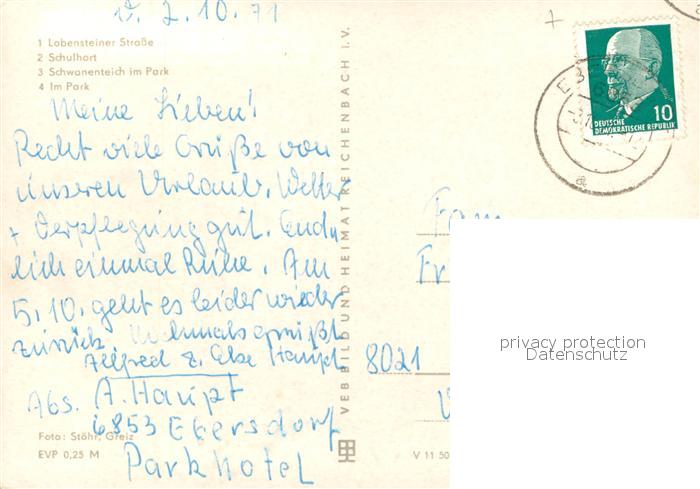 d. 2.10.71
1 Lobensteiner Straße
2 Schulhort
3 Schwanenteich im Park
4 Im Park
Meine Lieben!
Recht viele Grüße von
unseren Urlaub. Wetter
+ Verpflegung gut. End-
lich einmal Ruhe. Am
5.10. geht es leider wieder
zurück. Nochmals grüßt
Alfred & Else Haupt
Abs. A. Haupt
6853 Ebersdorf
Parkhotel
Foto: Stöhr, Greiz
EVP 0,25 M
VEB BILD UND HEIMAT REICHENBACH I. V.
V 11 50
10
DEUTSCHE
DEMOKRATISCHE REPUBLIK
Fam
Fr
8021
privacy protection
Datenschutz